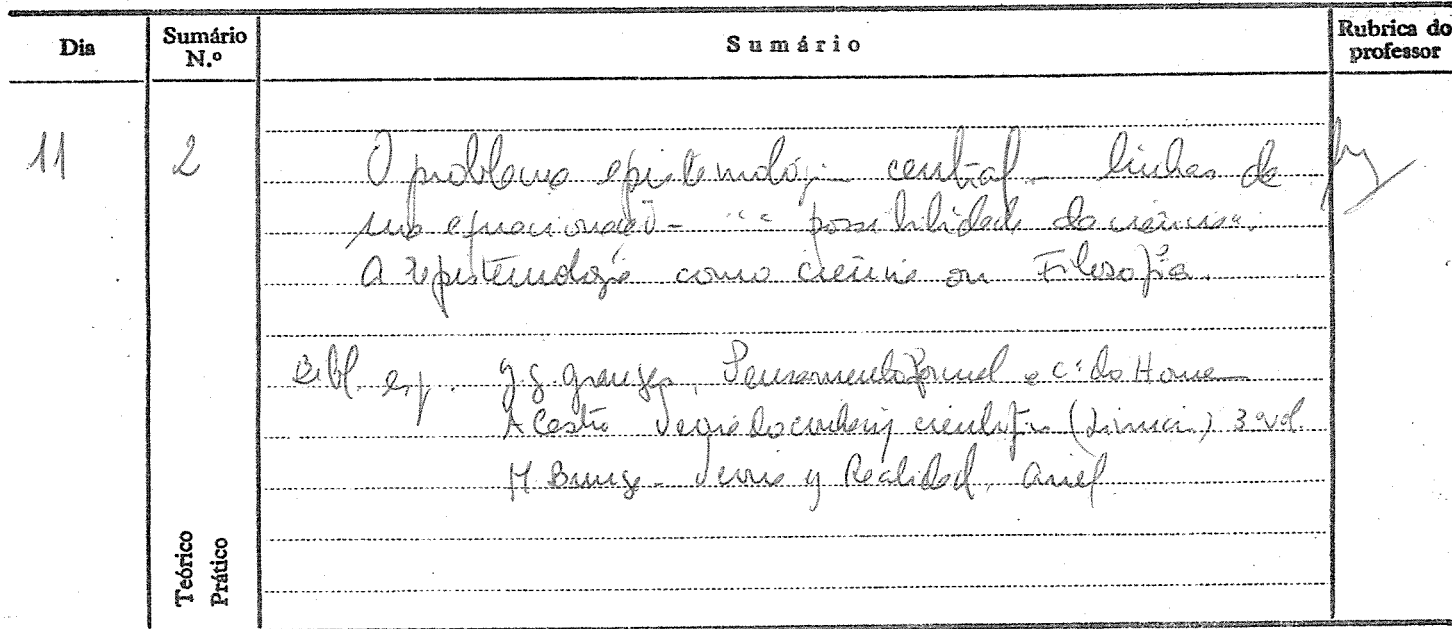 Dia
Sumário N.º
Sumário
Rubrica do professor
11
2
O problema epistemológi central – linhas de
sua equacionação – possibilidade da ciência.
A Epistemologia como ciência ou Filosofia.
Bibl. esp. G. G. Granger, Pensamento Formal e c. do Home
A Castro Teoria do conhecim científico (Limiar) 3º vol.
M Bunge – Teoria y Realidad, Ariel
Teórico
Prático